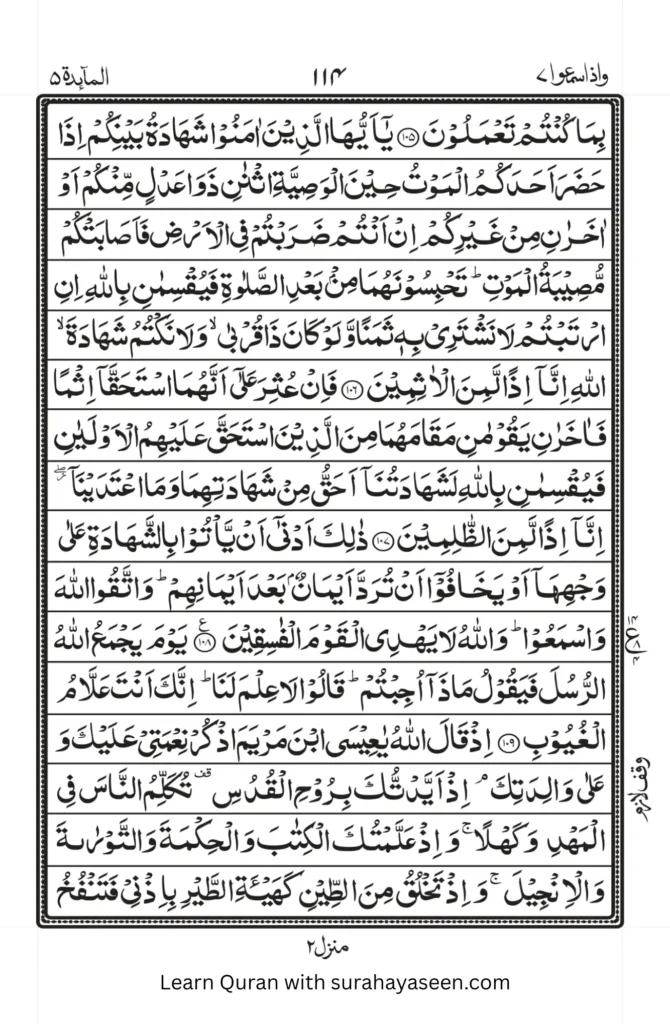 واذاسمعوا۷ ۱۱۴ المآىِٕدة۵
بِمَا كُنْتُمْ تَعْمَلُوْنَ ۝۱۰۵ يٰۤاَيُّهَا الَّذِيْنَ اٰمَنُوْا شَهَادَةُ بَيْنِكُمْ اِذَا
حَضَرَ اَحَدَكُمُ الْمَوْتُ حِيْنَ الْوَصِيَّةِ اثْنٰنِ ذَوَا عَدْلٍ مِّنْكُمْ اَوْ
اٰخَرٰنِ مِنْ غَيْرِكُمْ اِنْ اَنْتُمْ ضَرَبْتُمْ فِي الْاَرْضِ فَاَصَابَتْكُمْ
مُّصِيْبَةُ الْمَوْتِ ؕ تَحْبِسُوْنَهُمَا مِنْۢ بَعْدِ الصَّلٰوةِ فَيُقْسِمٰنِ بِاللّٰهِ اِنِ
ارْتَبْتُمْ لَا نَشْتَرِيْ بِهٖ ثَمَنًا وَّلَوْ كَانَ ذَا قُرْبٰى ۙ وَلَا نَكْتُمُ شَهَادَةَ ۙ
اللّٰهِ اِنَّاۤ اِذًا لَّمِنَ الْاٰثِمِيْنَ ۝۱۰۶ فَاِنْ عُثِرَ عَلٰۤى اَنَّهُمَا اسْتَحَقَّاۤ اِثْمًا
فَاٰخَرٰنِ يَقُوْمٰنِ مَقَامَهُمَا مِنَ الَّذِيْنَ اسْتَحَقَّ عَلَيْهِمُ الْاَوْلَيٰنِ
فَيُقْسِمٰنِ بِاللّٰهِ لَشَهَادَتُنَاۤ اَحَقُّ مِنْ شَهَادَتِهِمَا وَمَا اعْتَدَيْنَاۤ ۖ
اِنَّاۤ اِذًا لَّمِنَ الظّٰلِمِيْنَ ۝۱۰۷ ذٰلِكَ اَدْنٰۤى اَنْ يَّاْتُوْا بِالشَّهَادَةِ عَلٰى
وَجْهِهَاۤ اَوْ يَخَافُوْۤا اَنْ تُرَدَّ اَيْمَانٌۢ بَعْدَ اَيْمَانِهِمْ ؕ وَاتَّقُوا اللّٰهَ
وَاسْمَعُوْا ؕ وَاللّٰهُ لَا يَهْدِي الْقَوْمَ الْفٰسِقِيْنَ ۝۱۰۸ يَوْمَ يَجْمَعُ اللّٰهُ
الرُّسُلَ فَيَقُوْلُ مَاذَاۤ اُجِبْتُمْ ؕ قَالُوْا لَا عِلْمَ لَنَا ؕ اِنَّكَ اَنْتَ عَلَّامُ
الْغُيُوْبِ ۝۱۰۹ اِذْ قَالَ اللّٰهُ يٰعِيْسَى ابْنَ مَرْيَمَ اذْكُرْ نِعْمَتِيْ عَلَيْكَ وَ
عَلٰى وَالِدَتِكَ ۘ اِذْ اَيَّدْتُّكَ بِرُوْحِ الْقُدُسِ ۫ تُكَلِّمُ النَّاسَ فِي
وقف لازم
الْمَهْدِ وَكَهْلًا ۚ وَاِذْ عَلَّمْتُكَ الْكِتٰبَ وَالْحِكْمَةَ وَالتَّوْرٰىةَ
وَالْاِنْجِيْلَ ۚ وَاِذْ تَخْلُقُ مِنَ الطِّيْنِ كَهَيْـَٔةِ الطَّيْرِ بِاِذْنِيْ فَتَنْفُخُ
منزل۲
Learn Quran with surahayaseen.com